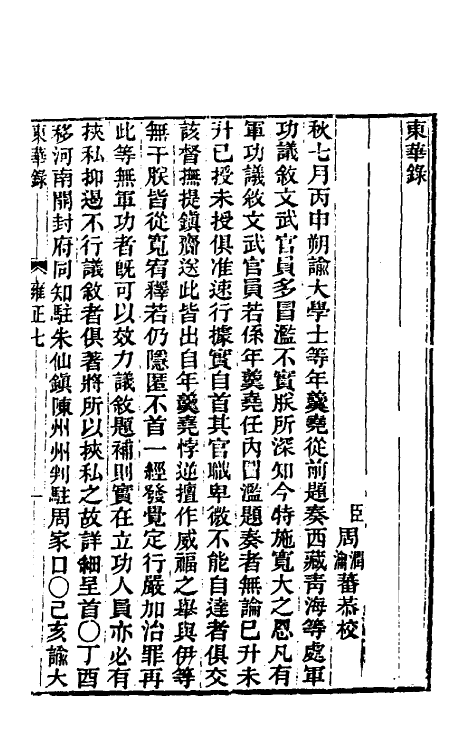 東華錄
臣周潤蕃瀹恭校
秋七月丙申朔諭大學士等年羹堯從前題奏西藏青海等處軍
功議敘文武官員多冒濫不實朕所深知今特施寬大之恩凡有
軍功議敘文武官員若係年羹堯任內冒濫題奏者無論已升未
升已授未授俱准速行據實自首其官職卑微不能自達者俱交
該督撫提鎮齎送此皆出自年羹堯悖逆擅作威福之舉與伊等
無干朕皆從寬宥釋若仍隱匿不首一經發覺定行嚴加治罪再
此等無軍功者旣可以效力議敘題補則實在立功人員亦必有
挾私抑遏不行議敘者俱著將所以挾私之故詳細呈首○丁酉
移河南開封府同知駐朱仙鎮陳州州判駐周家口○己亥諭大
東華錄 雍正七 一